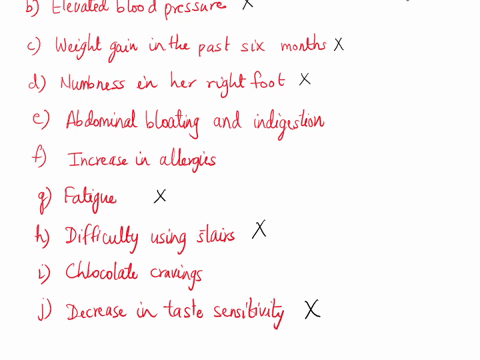 b) Elevated blood pressure X
c) Weight gain in the past six months X
d) Numbness in her right foot X
e) Abdominal bloating and indigestion
f) Increase in allergies
g) Fatigue X
h) Difficulty using stairs X
i) Chlocolate cravings
j) Decrease in taste sensitivity X